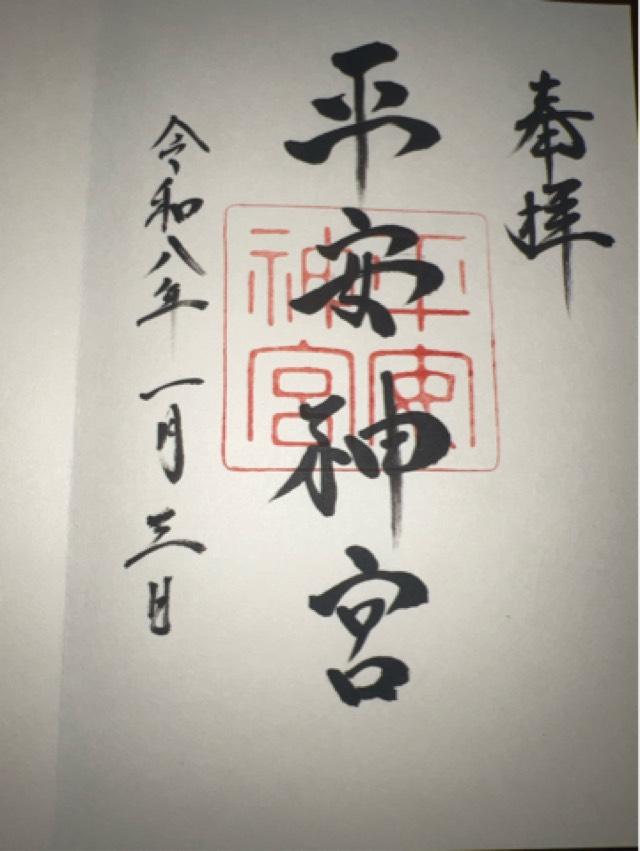 奉拝
平安神宮
平安神宮
令和八年一月三日